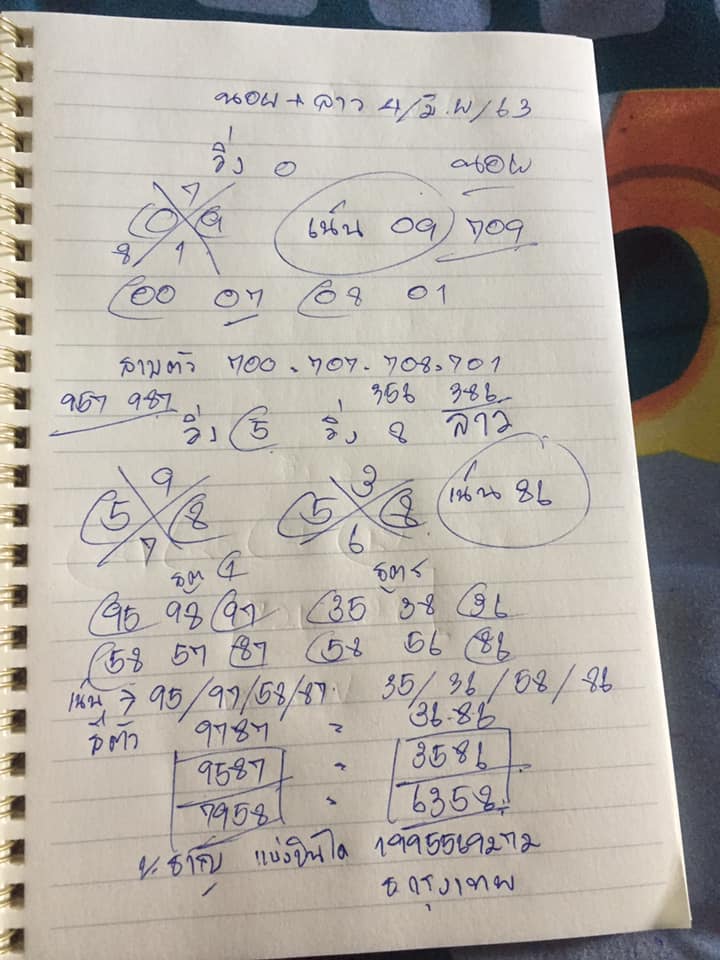 นอย + ลาว 4/มี.พ/63
วิ่ง 0 นอย
7
0 9 เน้น 09 709
8 1
00 07 08 01
สามตัว 700 . 707 . 708 . 701
957 987 356 386
วิ่ง 5 วิ่ง 8 ลาว
9 3
5 8 5 8 เน้น 86
7 6
95 98 97 35 38 36
58 57 87 58 56 86
เน้น → 95/97/58/87 35/36/58/86
สี่ตัว 9787 " 36.86
9587 " 3586
7958 " 6358
แบ่งปันได้ 1995569272
ธ กรุงเทพ